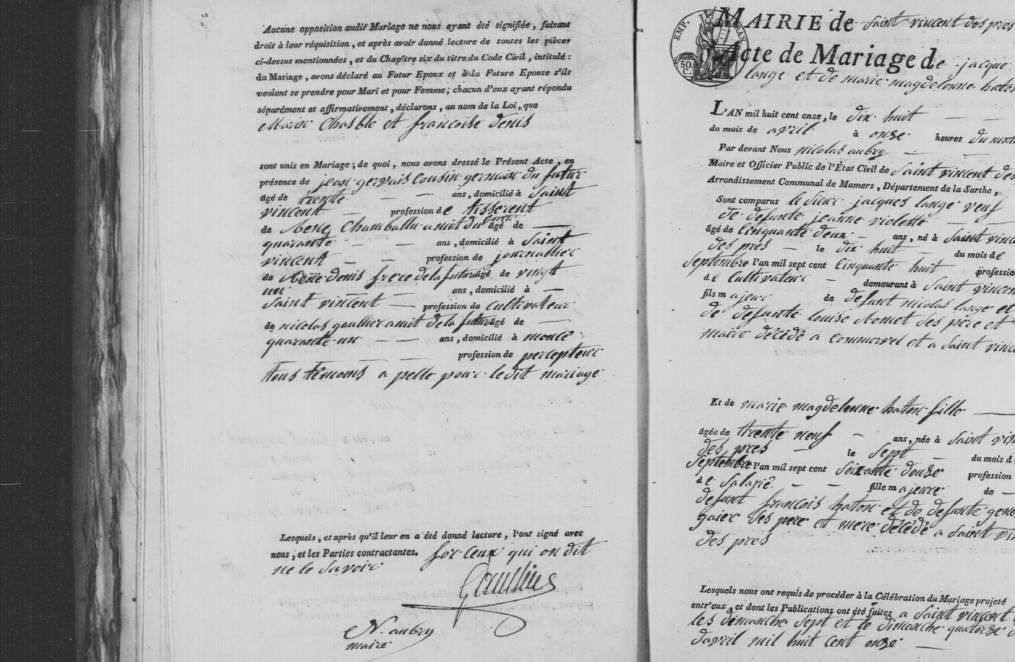 Aucune opposition audit Mariage ne nous ayant été signifiée, faisant
droit à leur réquisition, et après avoir donné lecture de toutes les pièces
ci-dessus mentionnées, et du Chapitre six du titre du Code Civil, intitulé :
du Mariage, avons déclaré au Futur Epoux et à la Future Epouse s'ils
veulent se prendre pour Mari et pour Femme; chacun d'eux ayant répondu
séparément et affirmativement, déclarons, au nom de la Loi, que
Marin Chasble et francoise denis
sont unis en Mariage; de quoi, nous avons dressé le Présent Acte, en
présence de jean gervais Cousin germain du futur
âgé de trente ans, domicilié à Saint
vincent profession de tisserent
de Rene Chamballu amit du futur âgé de
quarante ans, domicilié à Saint
vincent profession de journallier
de Réne denis frere de la future âgé de vingt
ans, domicilié à
Saint vincent profession de Cultivateur
de nicolas gaullier amit de la future âgé de
quarante un ans, domicilié à
profession de percepteur
tous témoins a pellé pour ledit mariage
Lesquels, et après qu'il leur en a été donné lecture, l'ont signé avec
nous, et les Parties contractantes. for ceux qui on dit
ne le Savoir
Gaullier
N. aubry
maire
MAIRIE de Saint vincent des pres
EMP.
50
C.
Acte de Mariage de jacque
lange et de marie magdelenne haton
L'AN mil huit cent onze, le dix huit
du mois de avril à onze heures du
Par devant Nous nicolas aubry
Maire et Officier Public de l'État Civil de Saint vincent des
Arrondissement Communal de Mamers, Département de la Sarthe,
Sont comparus le Sieur jacques lange veuf
de defunte jeanne violette
âgé de Cinquante deux ans, né à Saint
des pres le dix huit du mois de
Septembre l'an mil sept cent Cinquante huit profession
de Cultivateur demeurant à Saint vincent
fils majeur de defunt nicolas lange et
de defunte louise des père et
mère décédé a Commervel et a Saint
Et de marie magdelenne haton fille
âgée de trente neuf ans, née à Saint
des pres le Sept du mois d
Septembre l'an mil sept cent Soixante douze profession
de Salarié fille majeure de
defunt françois haton et de defunte
des pere et mere décédé a Saint
des pres
Lesquels nous ont requis de procéder à la Célébration du Mariage projeté
entr'eux, et dont les Publications ont été faites a Saint vincent
les dimanche Sept et le dimanche quatorze
davril mil huit cent onze